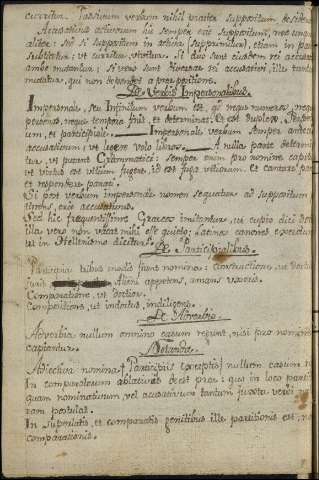 curritur. Passivum verbum nihil praeter suppositum deside
Accusativus activorum hic semper erit suppositum, nec unqu
aliter: nisi si suppositum in activa supprimitur, etiam in pass
subticetur, ut curritur, vivitur. Si duo sunt ejusdem rei accusat
ambo mutantur; si vero sunt diversae rei accusativi, ille tantu
mutatur, qui non dependet a praepositione.
De Verbis Impersonalibus.
Impersonale, seu Infinitum verbum est, quod neque numeros, neque
personas, neque tempora finit, et determinat: Et est duplex. Proprium
um, et participiale. Impersonale verbum semper antece
accusativum ut legere volo libros. A nulla parte determin
tur, ut putant Grammatici: semper enim pro nomine capitu
ut virtus est vitium fugere, id est fuga vitiorum. Et cantare pares
et respondere parati.
Si post verbum impersonale nomen sequatur ad suppositum
ferens, erit accusativus.
Sed hic frequentissime Graecos imitantur, ut cupio dici doct
illa vero non vacat mihi esse quieto; Latinos canores expectan
ut in Hellenismo dicetur.
De Participialibus.
Participia tribus modis fiunt nomina: constructione, ut doctus
juris. alieni appetens, amans uxoris.
Comparatione, ut doctior.
Compositione, ut indoctus, indiligens.
De Adverbio.
Adverbia nullum omnino casum regunt, nisi pro nomine
capiantur.
Notanda.
Adjectiva nomina (Participiis exceptis) nullum casum re
In comparativum ablativus de est prae: quia in loco partic
quam nominativum, vel accusativum tantum juxta verbi
ram postulat.
In Superlatis, et comparatis genitivus ille partitionis est, no
comparationis.